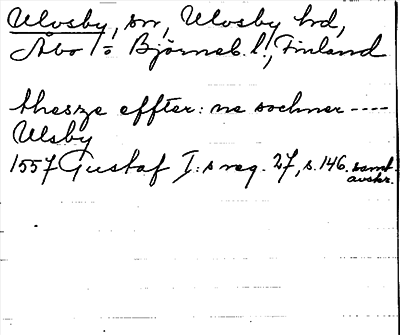 Ulvsby, sn, Ulvsby hd,
Åbo o Björneb. l., Finland
thesze effter: ne sochner ----
Ulsby
1557 Gustaf I:s reg. 27, s. 146. samt.
avskr.